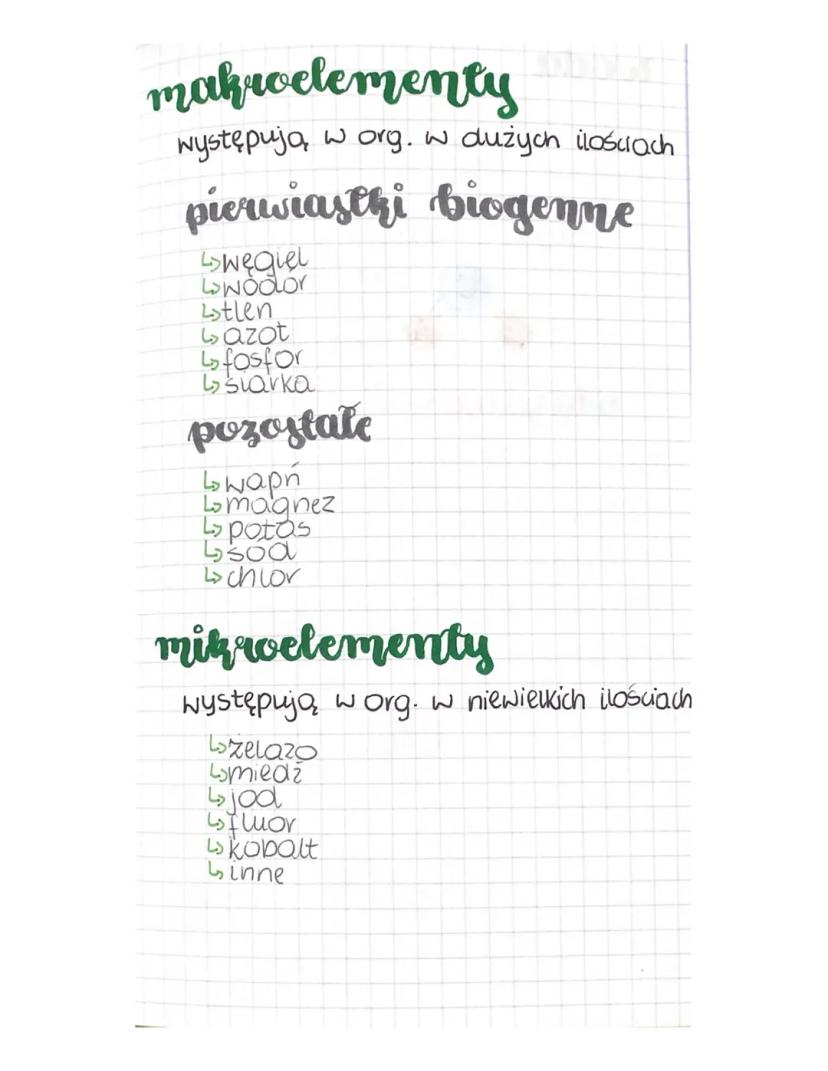 makroelementy
występują w org. w dużych ilościach
pierwiastki biogenne
↳węgiel
↳wodór
↳tlen
↳azot
↳fosfor
↳siarka
pozostałe
↳wapń
↳magnez
↳potas
↳sód
↳chlor
mikroelementy
występują w org. w niewielkich ilościach
↳żelazo
↳miedź
↳jod
↳fluor
↳kobalt
↳inne